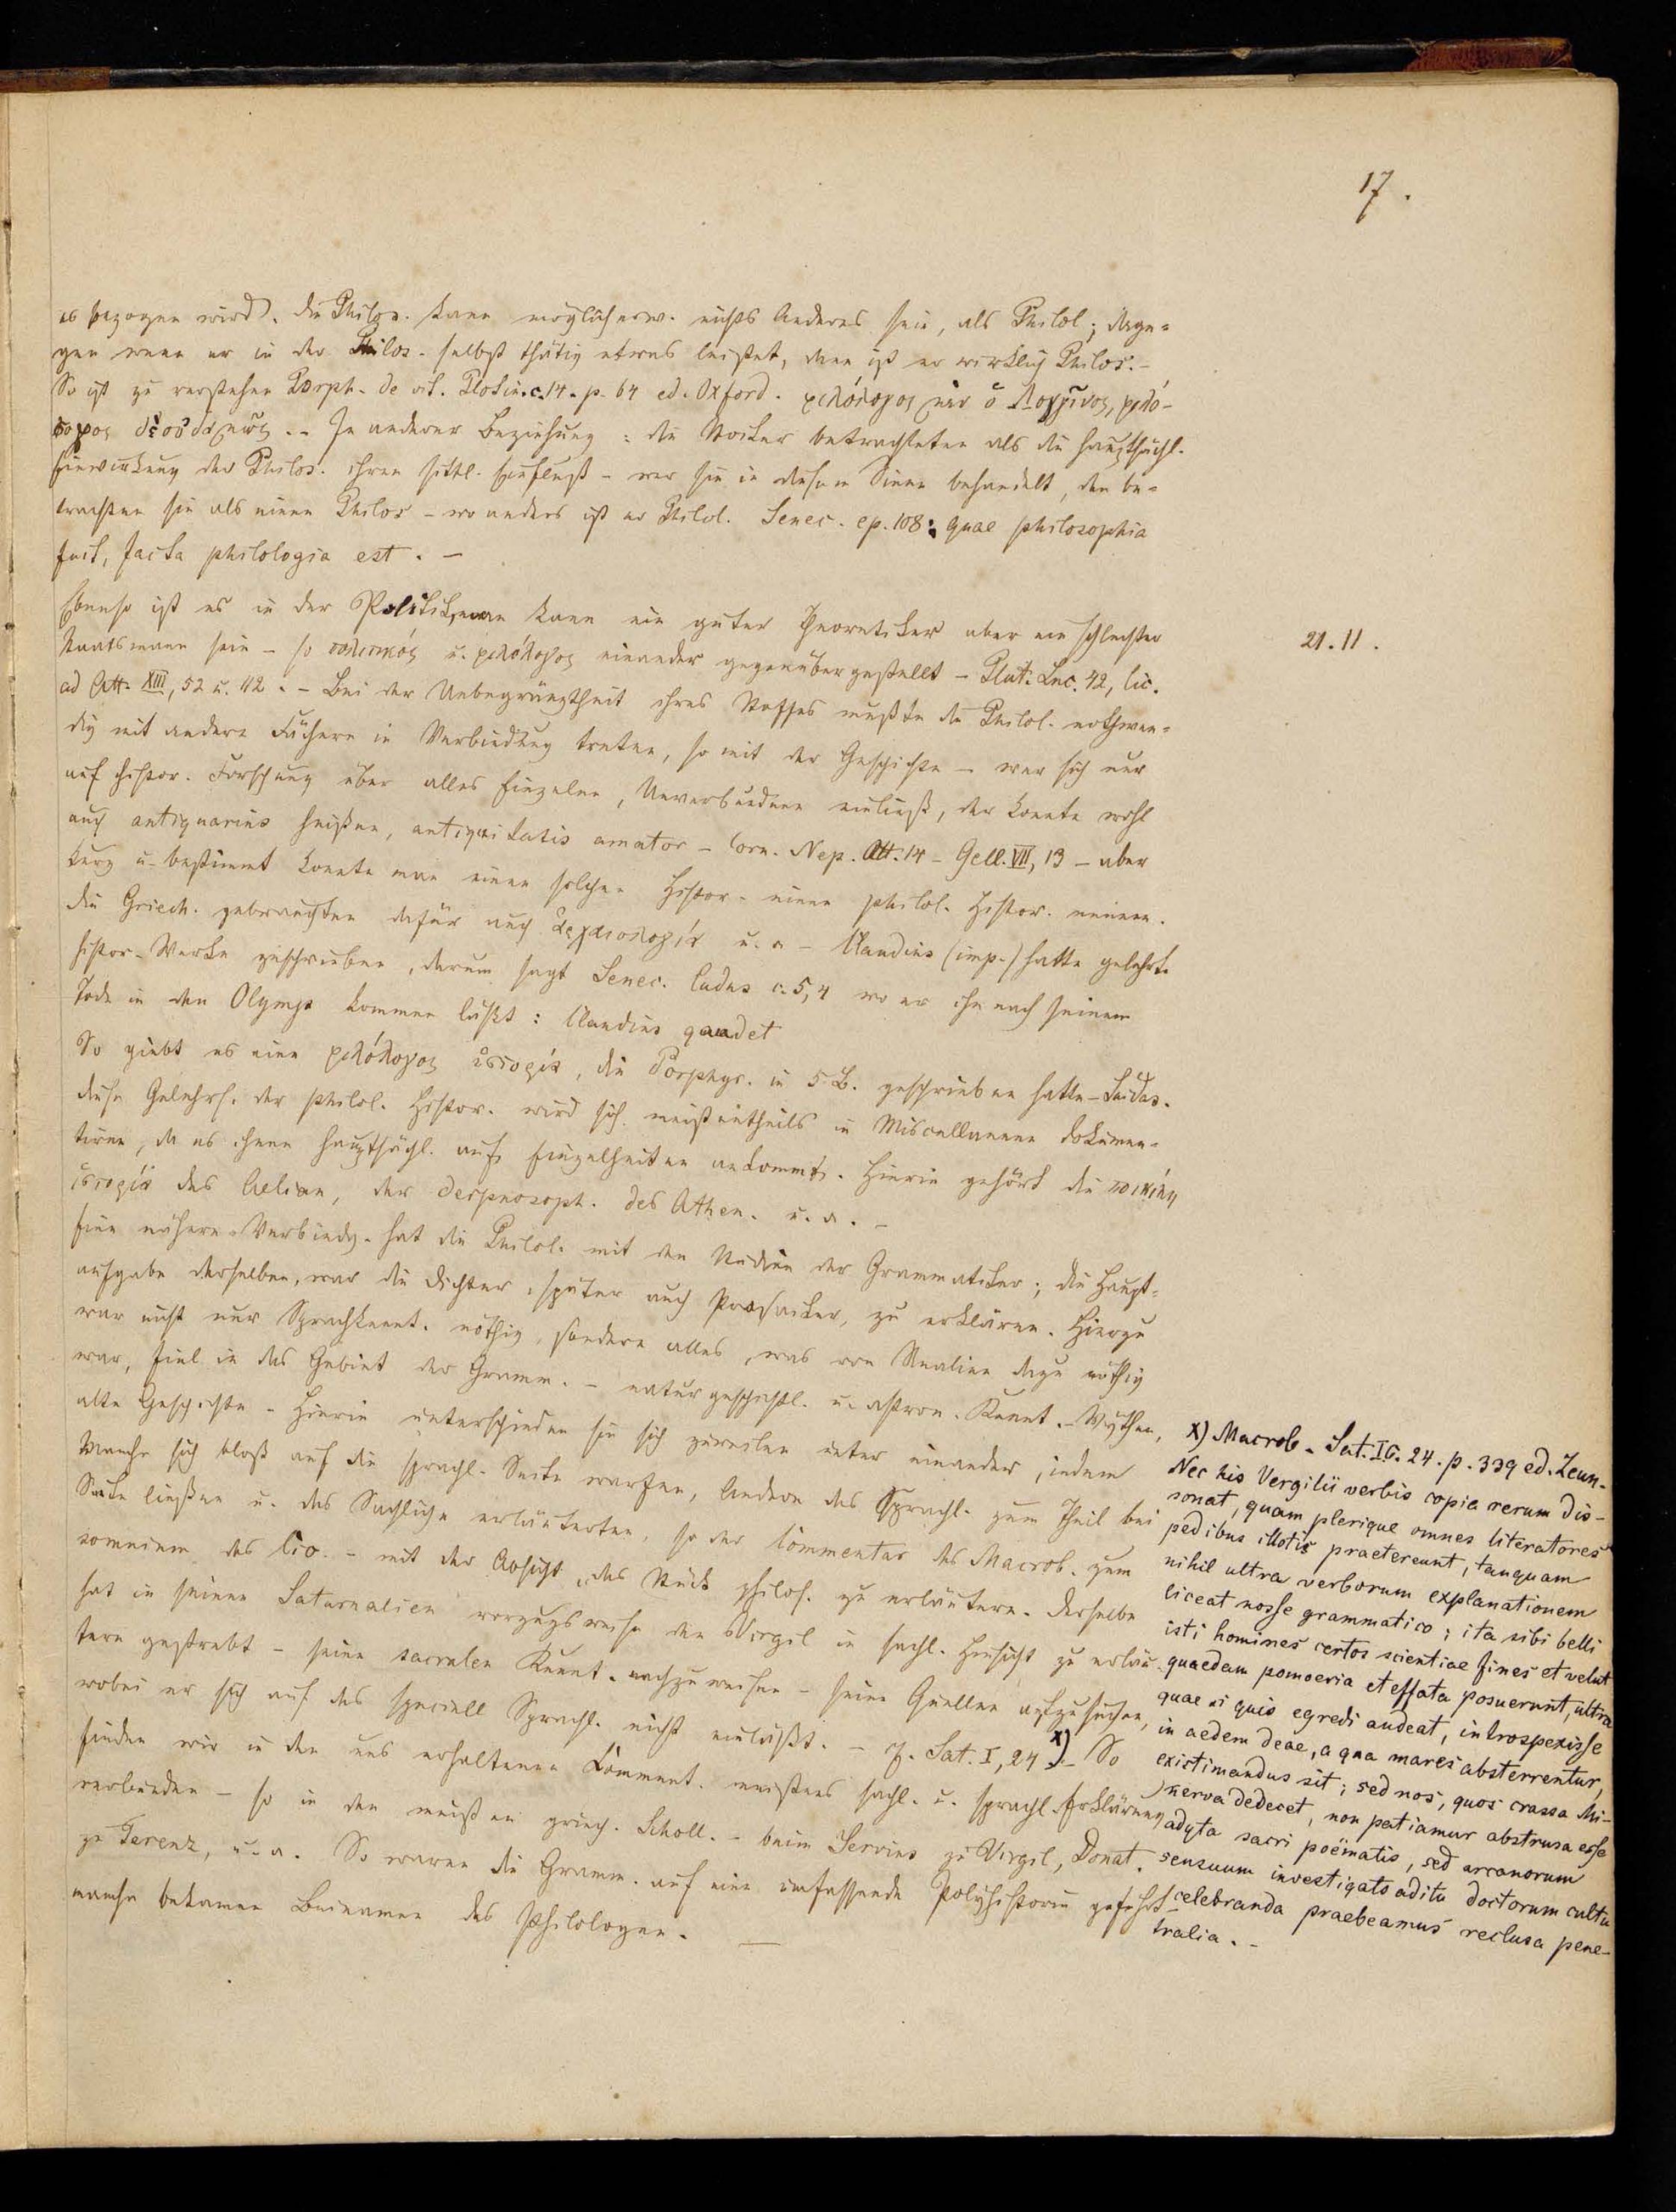 17.
es bezogen wird. Die Philos. kann möglicherw. nichts Anderes sein, als Philol; dage=
gen wenn er in der Philos. selbst thätig etwas leistet, dann ist er wirklich Philos. –
So ist zu verstehen Porph. de vit. Plotin. c. 14. p. 64 ed. Oxford. φιλόλογος μὲν ὁ Λογγῖνος, φιλό-
σοφος δὲ οὐδαμῶς. – In anderer Beziehung: die Stoiker betrachteten als die hauptsächl.
Einwirkung der Philos. ihren sittl. Einfluß – wer sie in diesem Sinne behandelt, den be=
trachten sie als einen Philos – wo anders ist er Philol. Senec. ep. 108: quae philosophia
fuit, facta philologia est. –
Ebenso ist es in der Politik, man kann ein guter Theoretiker aber ein schlechter
21.11.
Staatsmann sein – so πολιτικός u. φιλόλογος einander gegenübergestellt – Plut. Luc. 42, Cic.
ad Att. XIII, 52 u. 112. – Bei der Unbegränztheit ihres Stoffes mußte die Philol. nothwen=
dig mit andern Fächern in Verbindung treten, so mit der Geschichte – wer sich nur
auf histor. Forschung über alles Einzelne, Unverbundene einließ, der konnte wohl
auch antiquarius heißen, antiquitatis amator – Corn. Nep. Att. 14 – Gell. VII, 13 – aber
kurz u. bestimmt konnte man einen solchen Histor. einen philol. Histor. nennen.
Die Griech. gebrauchten dafür auch ἀρχαιολογία u. a – Claudius (imp.) hatte gelehrte
histor. Werke geschrieben, darum sagt Senec. ludus c. 5, 4 wo er ihn nach seinem
Tode in den Olymp kommen läßt: Claudius gaudet
So giebt es eine φιλόλογος ἱστορία, die Porphyr. in 5 B. geschrieben hatte – Suidas.
Diese Gelehrs. der philol. Histor. wird sich meistentheils in Miscellaneen dokumen=
tiren, da es ihnen hauptsächl. auf Einzelheiten ankommt. Hierin gehört die ποικίλη
ἱστορία des Aelian, der Deipnosoph. des Athen. u. a. –
Eine nähere Verbindg. hat die Philol. mit den Studien der Grammatiker; die Haupt=
aufgabe derselben, war die Dichter, später auch Prosaiker, zu erklären. Hierzu
war nicht nur Sprachkennt. nöthig, sondern alles, was von Realien dazu nöthig
war, fiel in das Gebiet der Gramm. – naturgeschichtl. u. astron. Kennt. – Mythen,
alte Geschichte – Hierin unterschieden sie sich zuweilen unter einander, indem
Manche sich bloß auf die sprachl. Seite warfen, Andere das Sprachl. zum Theil bei
Seite ließen u. das Sachliche erläuterten, so der Commentar des Macrob. zum
somnium des Cic. – mit der Absicht, das Stück philos. zu erläutern. Derselbe
hat in seinen Saturnalien vorzugsweise den Virgil in sachl. Hinsicht zu erläu-
tern gestrebt – seine sacralen Kennt. nachzuweisen – seine Quellen aufzusuchen,
wobei er sich auf das speciell Sprachl. nicht einläßt. – cf. Sat. I, 24 x) – So
finden wir in den uns erhaltenen Comment. meistens sachl. u. sprachl. Erklärung
verbunden – so in den meisten griech. Scholl. – beim Servius zu Virgil, Donat.
zu Terenz, u. a. So waren die Gramm. auf eine umfassende Polyhistorie geführt
manche bekamen Beinamen des Philologen. —
x) Macrob. Sat. I G. 24. p. 339 ed. Zeun.
Nec his Vergilii verbis copia rerum dis-
sonat, quam plerique omnes literatores
pedibus illotis praetereunt, tanquam
nihil ultra verborum explanationem
liceat nosse grammatico; ita sibi belli
isti homines certos scientiae fines et velut
quaedam pomoeria et effata posuerunt, ultra
quae si quis egredi audeat, introspexisse
in aedem deae, a qua mares absterrentur,
existimandus sit; sed nos, quos crassa Mi-
nerva dedecet, non patiamur abstrusa esse
adyta sacri poëmatis, sed arcanorum
sensuum investigato aditu doctorum cultu
celebranda praebeamus reclusa pene-
tralia. –